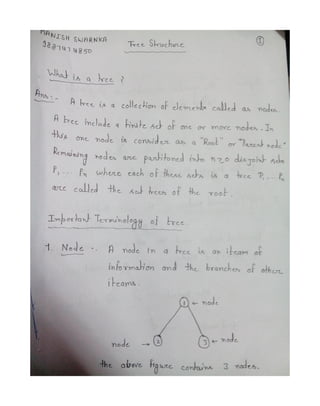 MANISH SWARNKA
9887474850
Tree Structure
1
What is a tree ?
Ans:- A tree is a collection of elements called as nodes
A tree include a finite set of one or more nodes. In
this one node is consider as a "Root" or "Parent node"
Remaining nodes are partitoned into n≥0 disjoint sets
P1 ... Pn where each of these sets is a tree P1 ... Pn
are called the sub trees of the root.
Important Terminology of tree.
1. Node -. A node in a tree is an iteam of
information and the branches of other
iteams.
1 ← node
node → 2 3 ← node
the above figure contains 3 nodes.